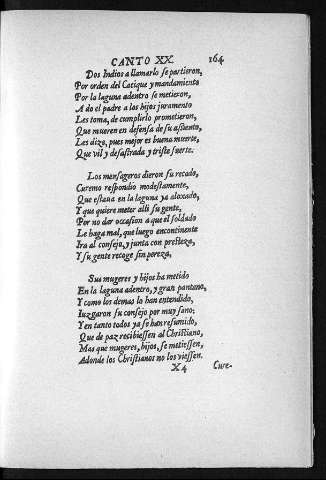 CANTO XX. 164
Dos Indios a llamarlo se partieron,
Por orden del Cacique y mandamiento
Por la laguna adentro se metieron,
A do el padre a los hijos juramento
Les toma, de cumplirlo prometieron,
Que mueren en defensa de su assiento,
Les dize, pues mejor es buena muerte,
Que vil y desastrada y triste suerte.
Los mensageros dieron su recado,
Curemo respondio modestamente,
Que estaua en la laguna ya aloxado,
Y que quiere meter alli su gente,
Por no dar occasion a que el soldado
Le haga mal, que luego encontinente
Ira al consejo, y junta con presteza,
Y su gente recoge sin pereza,
Sus mugeres y hijos ha metido
En la laguna adentro, y gran pantano,
Y como los demas lo han entendido,
Iuzgaron su consejo por muy sano;
Y en tanto todos ya se han resumido,
Que de paz recibiessen al Christiano,
Mas que mugeres, hijos, se metiessen,
Adonde los Christianos no los viessen.
X4 Cure-